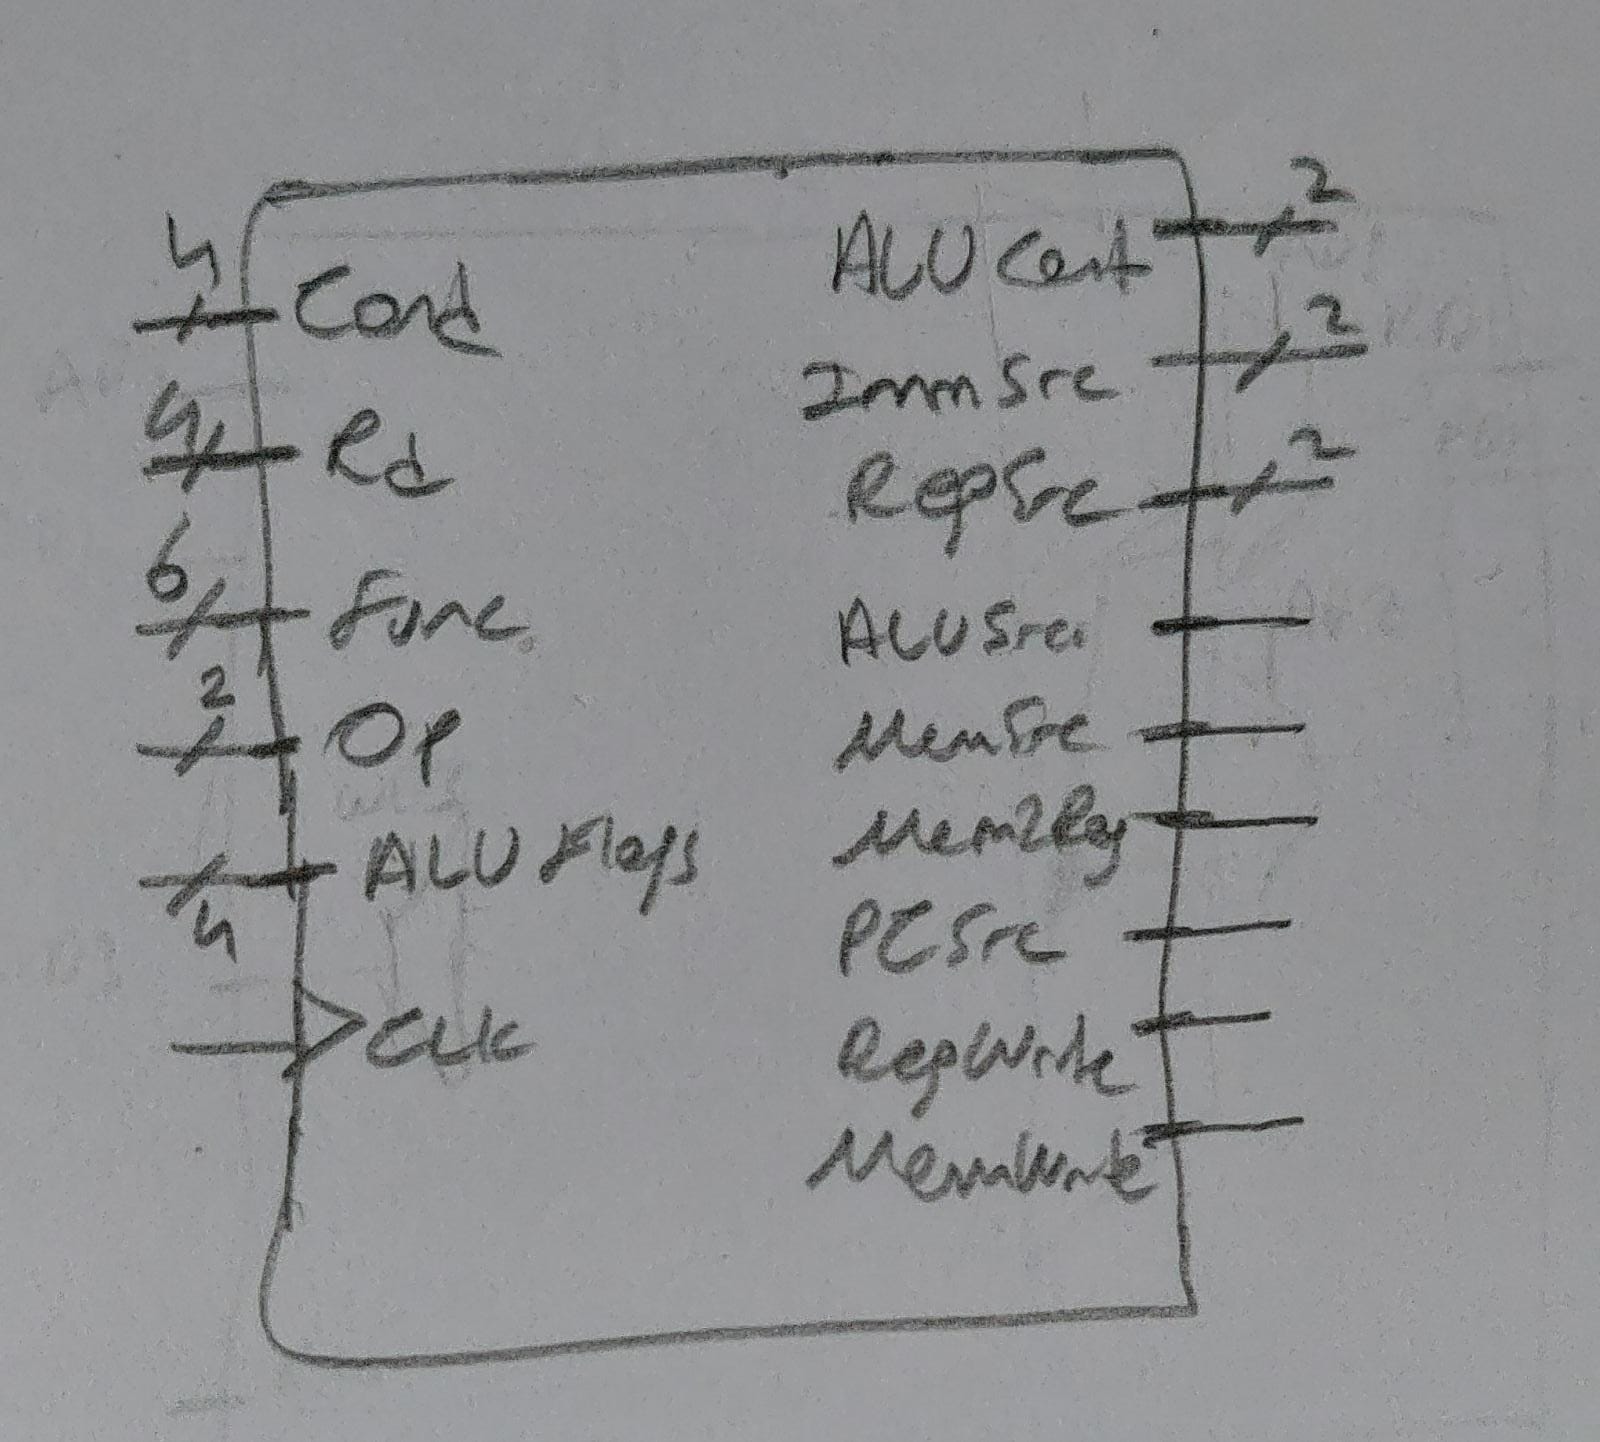 4 Cond
4 Rd
6 Func
2 Op
ALU Flags
4
CLK
ALU Cont 2
ImmSrc 2
RegSrc 2
ALUSrc
MemSrc
Mem2Reg
PCSrc
RegWrite
MemWrite